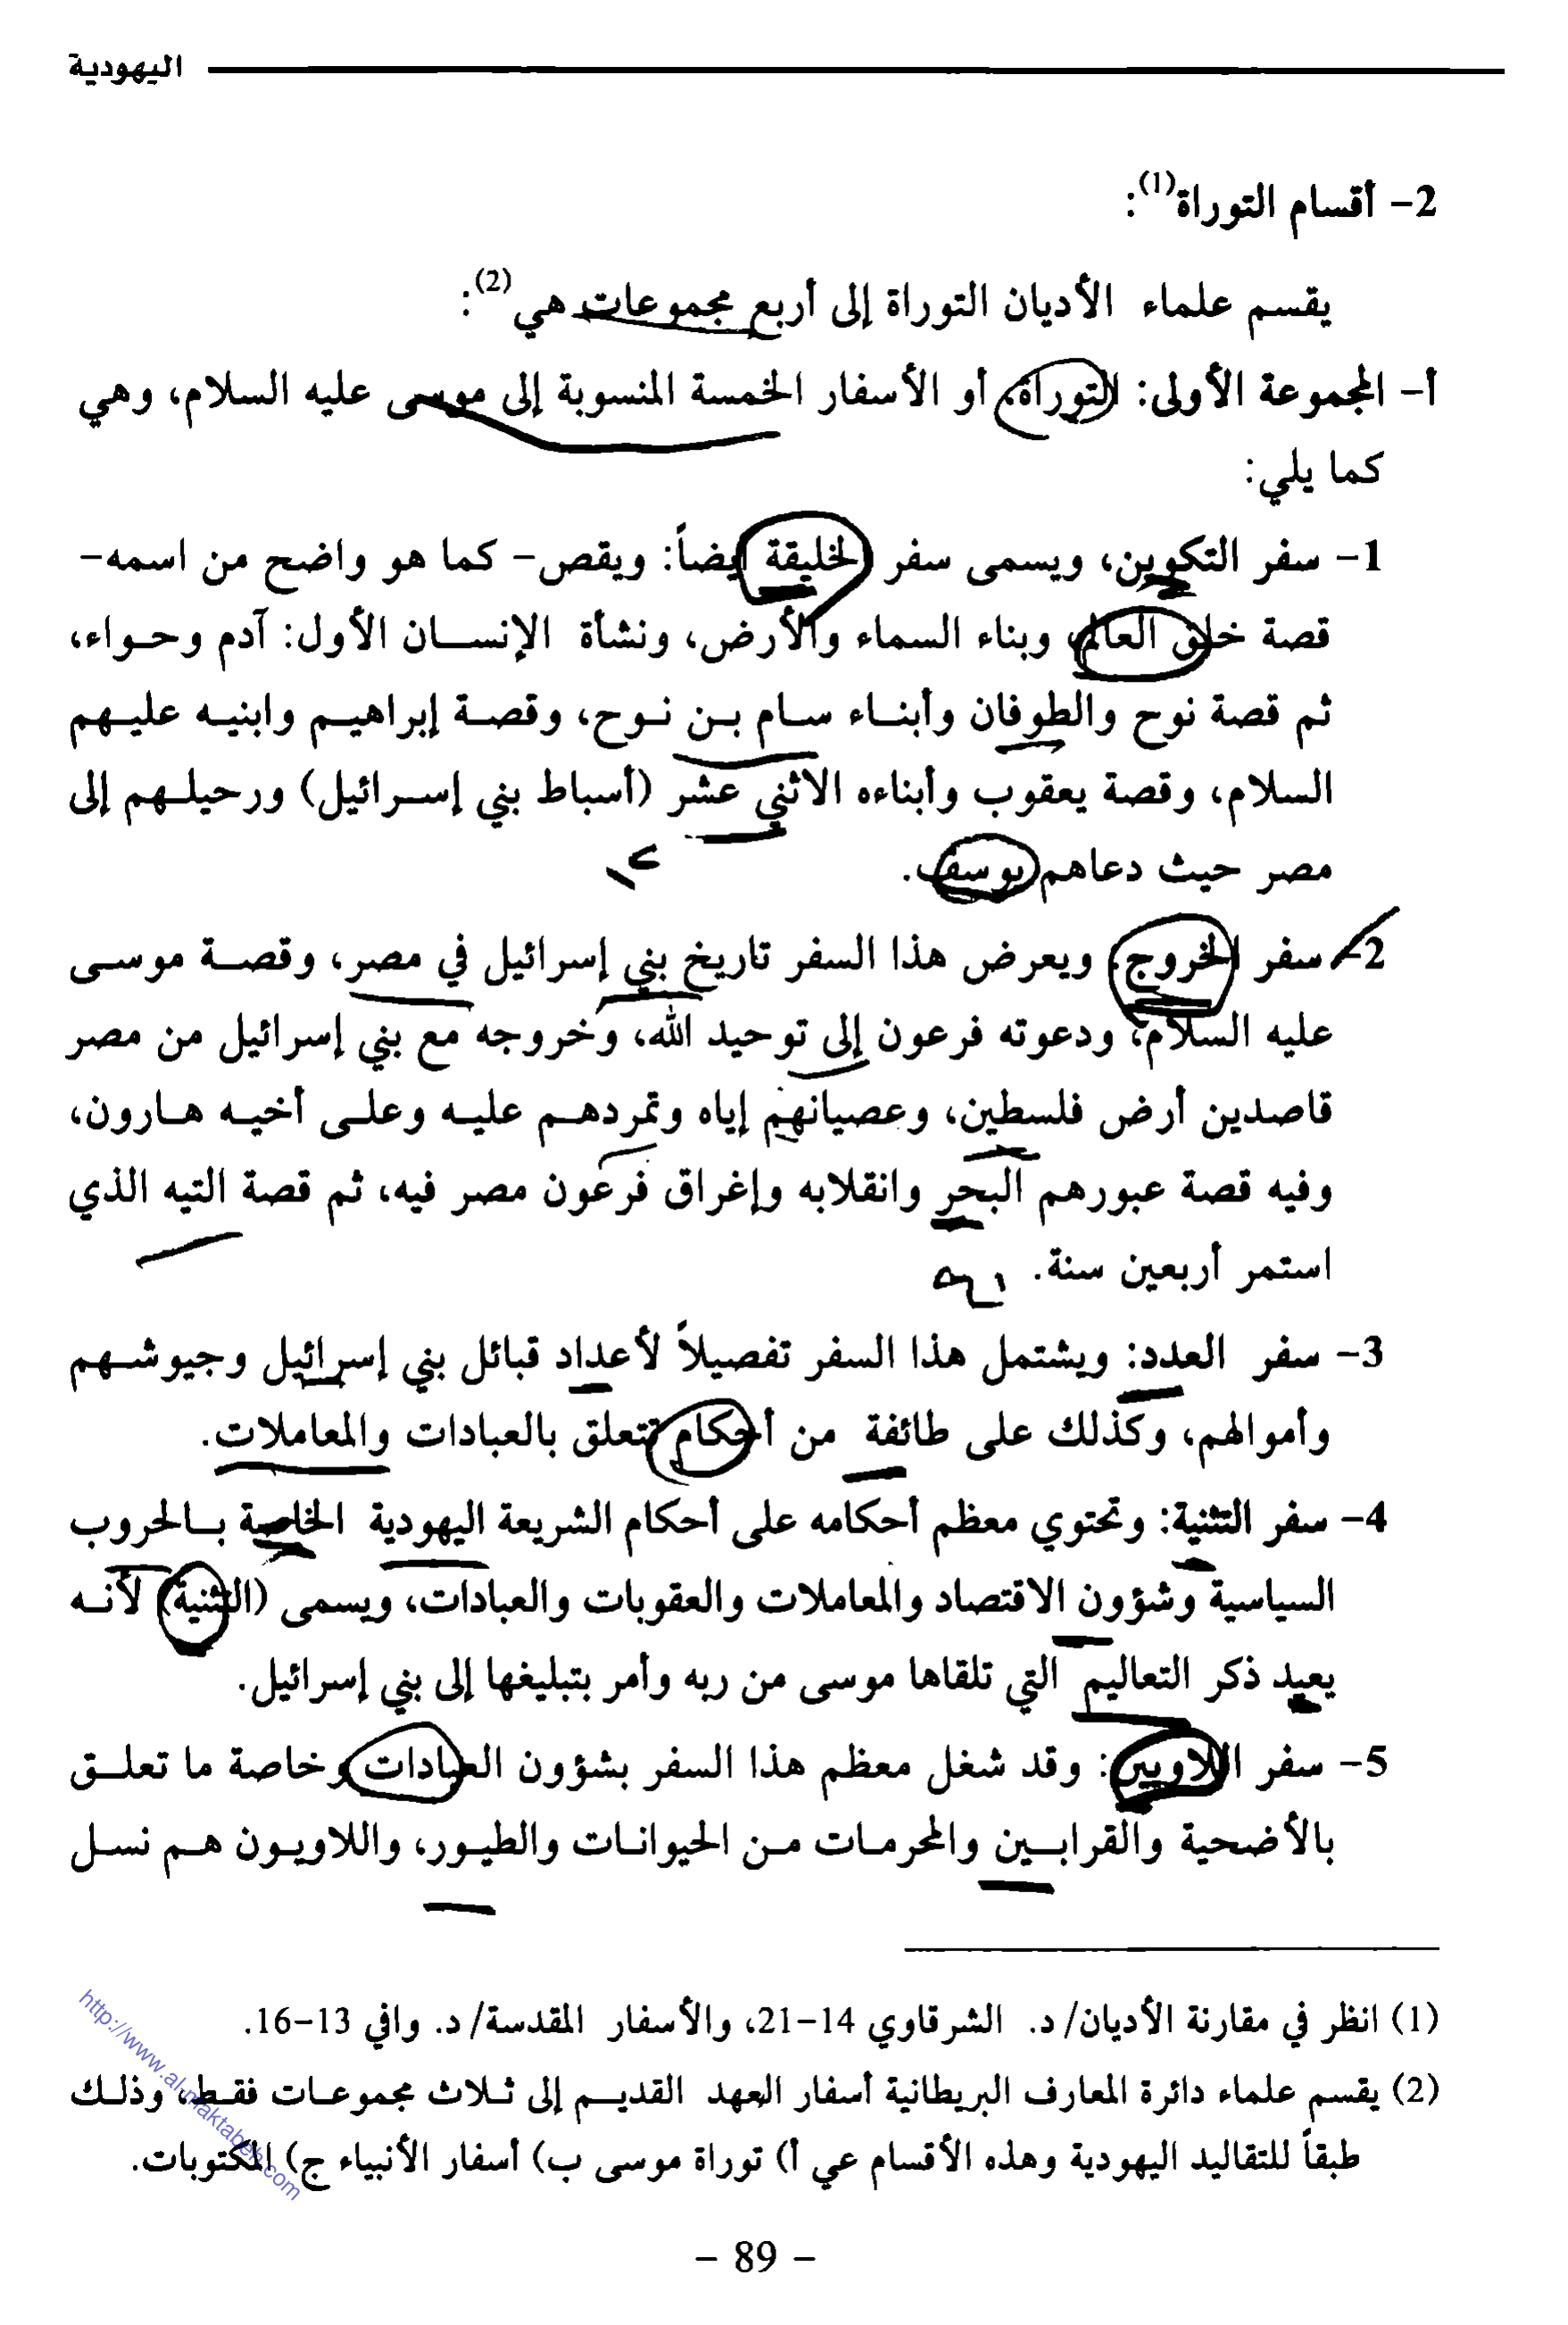 اليهودية
2- أقسام التوراة(1):
يقسم علماء الأديان التوراة إلى أربع مجموعات هي(2):
أ- المجموعة الأولى: التوراة، أو الأسفار الخمسة المنسوبة إلى موسى عليه السلام، وهي
كما يلي:
1- سفر التكوين، ويسمى سفر الخليقة أيضاً: ويقص- كما هو واضح من اسمه-
قصة خلق العالم، وبناء السماء والأرض، ونشأة الإنسان الأول: آدم وحواء،
ثم قصة نوح والطوفان وأبناء سام بن نوح، وقصة إبراهيم وابنيه عليهم
السلام، وقصة يعقوب وأبناءه الاثني عشر (أسباط بني إسرائيل) ورحيلهم إلى
مصر حيث دعاهم يوسف.
2- سفر الخروج، ويعرض هذا السفر تاريخ بني إسرائيل في مصر، وقصة موسى
عليه السلام، ودعوته فرعون إلى توحيد الله، وخروجه مع بني إسرائيل من مصر
قاصدين أرض فلسطين، وعصيانهم إياه وتمردهم عليه وعلى أخيه هارون،
وفيه قصة عبورهم البحر وانقلابه وإغراق فرعون مصر فيه، ثم قصة التيه الذي
استمر أربعين سنة.
3- سفر العدد: ويشتمل هذا السفر تفصيلاً لأعداد قبائل بني إسرائيل وجيوشهم
وأموالهم، وكذلك على طائفة من أحكام تتعلق بالعبادات والمعاملات.
4- سفر التثنية: وتحتوي معظم أحكامه على أحكام الشريعة اليهودية الخاصة بالحروب
السياسية وشؤون الاقتصاد والمعاملات والعقوبات والعبادات، ويسمى (التثنية) لأنه
يعيد ذكر التعاليم التي تلقاها موسى من ربه وأمر بتبليغها إلى بني إسرائيل.
5- سفر اللاويين: وقد شغل معظم هذا السفر بشؤون العبادات وخاصة ما تعلق
بالأضحية والقرابين والمحرمات من الحيوانات والطيور، واللاويون هم نسل
(1) انظر في مقارنة الأديان/ د. الشرقاوي 14-21، والأسفار المقدسة/ د. وافي 13-16.
(2) يقسم علماء دائرة المعارف البريطانية أسفار العهد القديم إلى ثلاث مجموعات فقط، وذلك
طبقاً للتقاليد اليهودية وهذه الأقسام عي أ) توراة موسى ب) أسفار الأنبياء ج) المكتوبات.
http://www.al-maktabeh.com
- 89 -